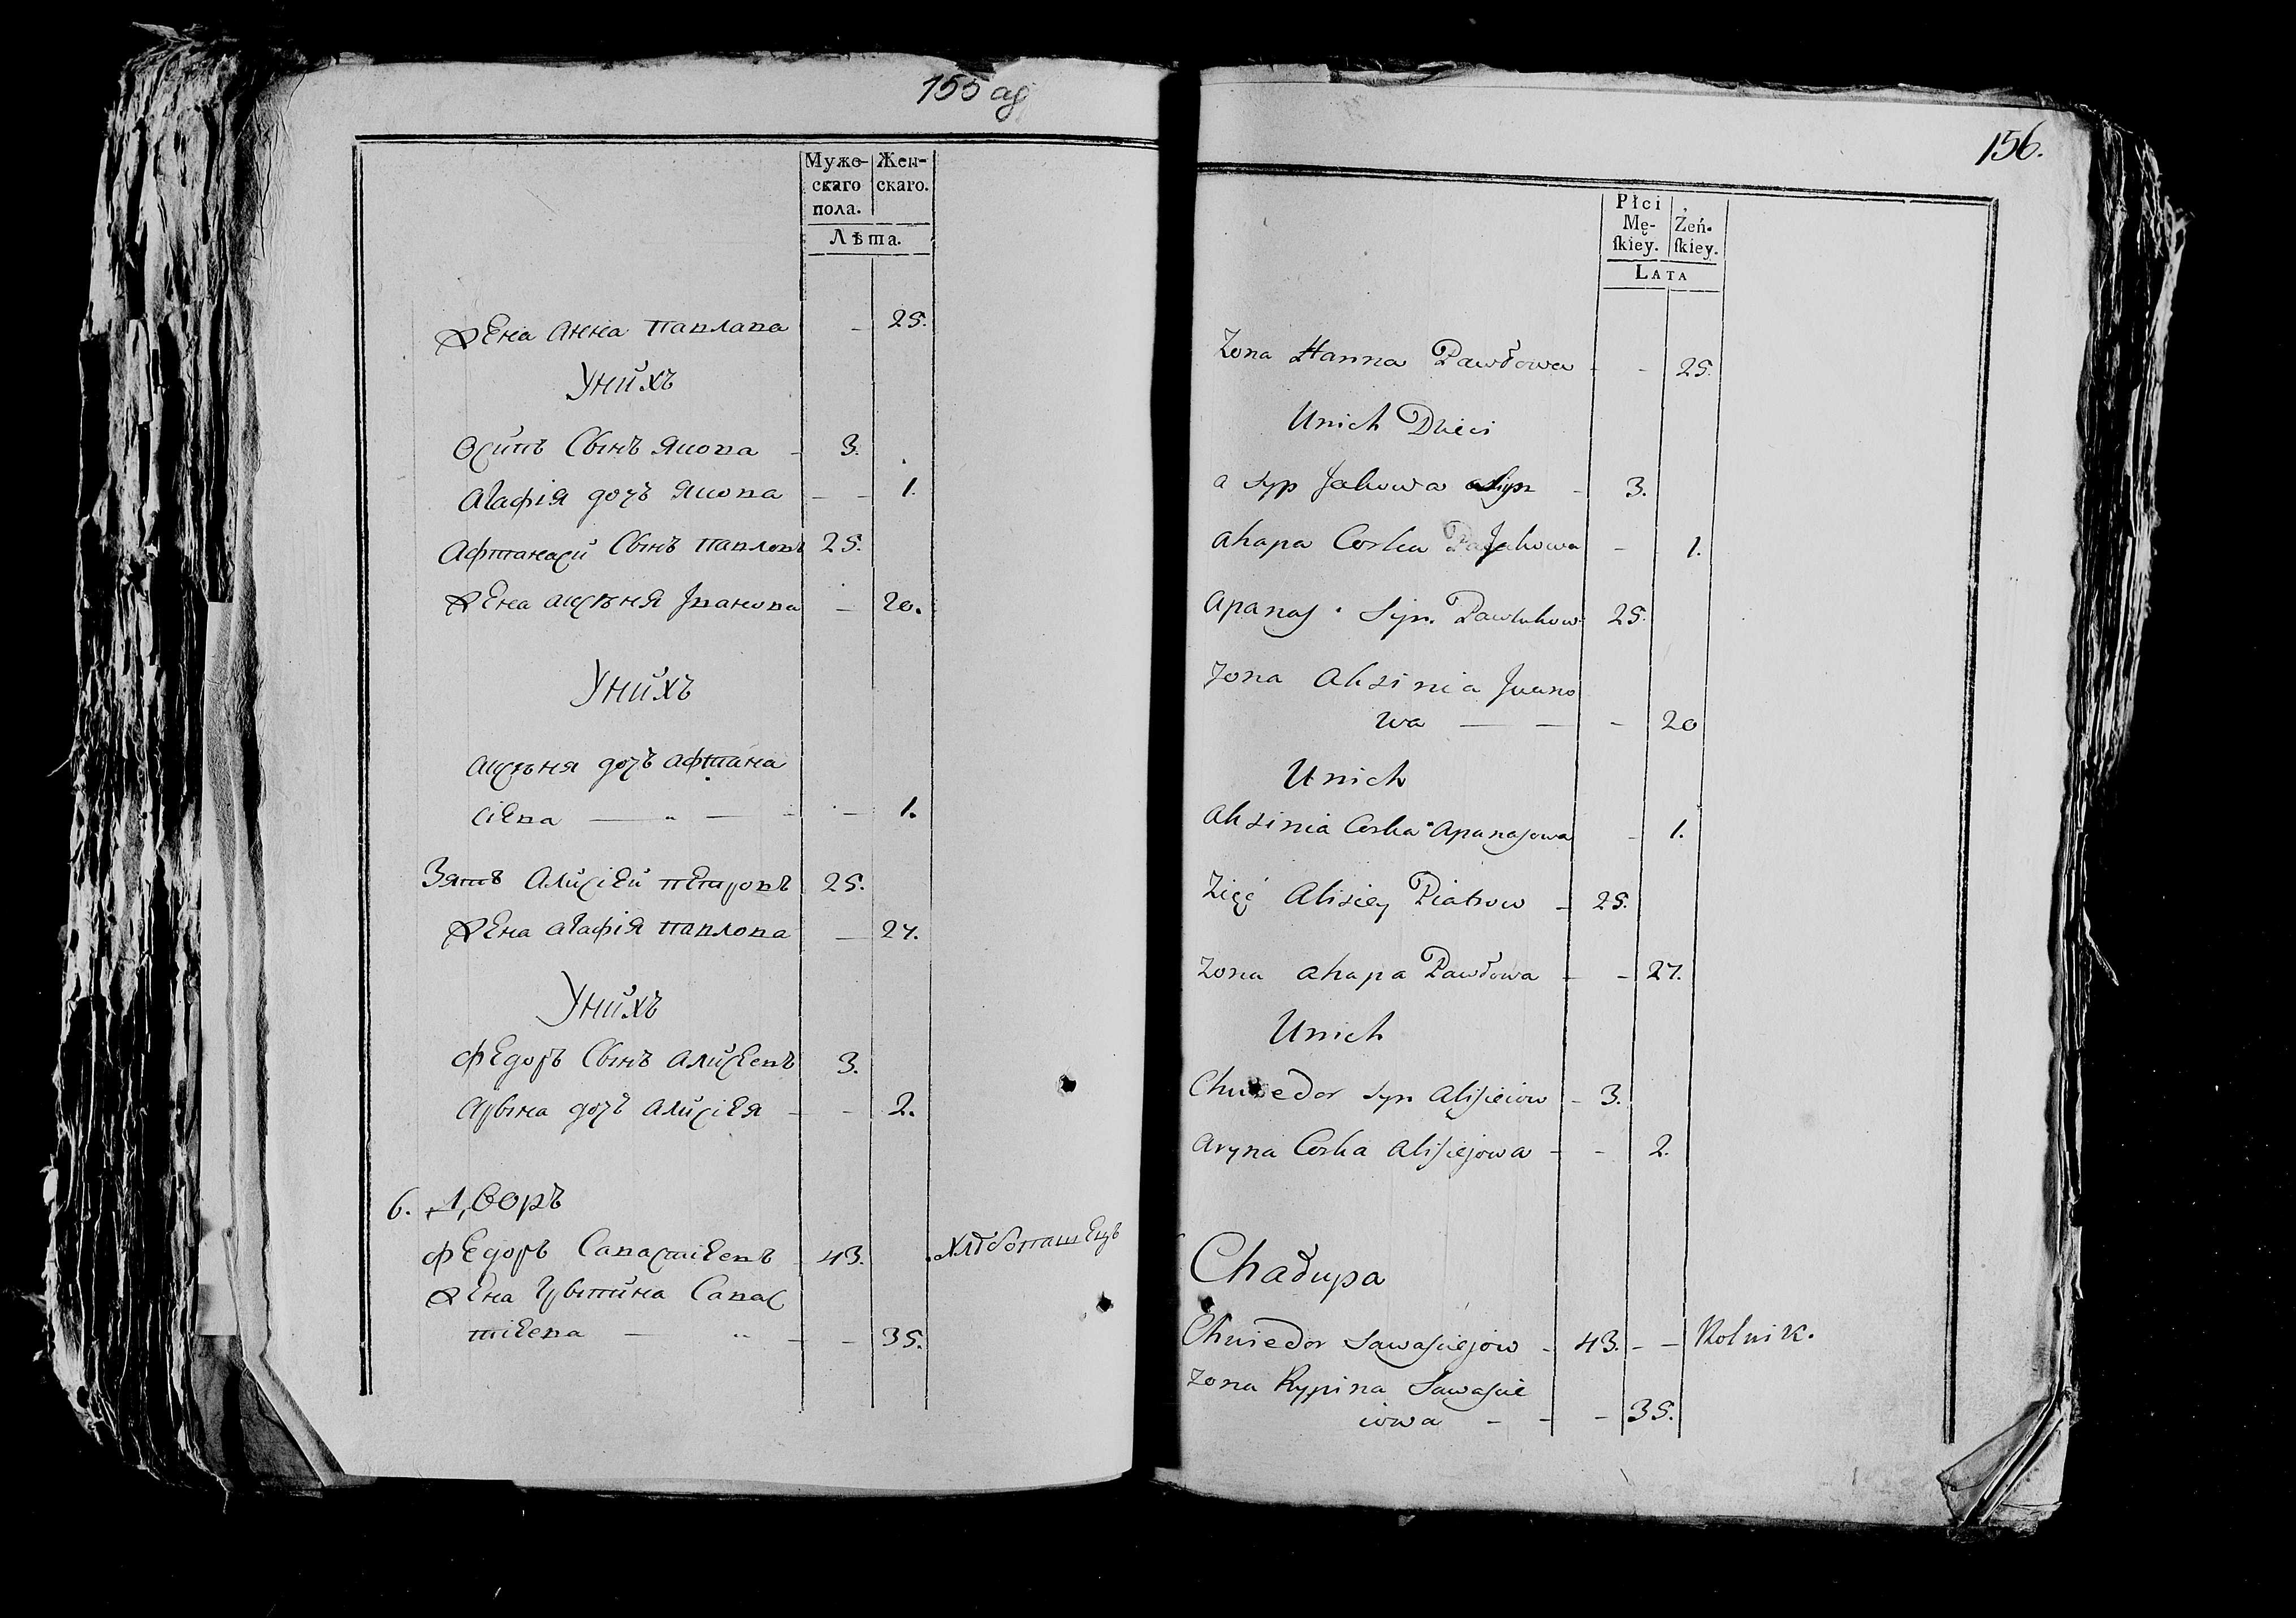 155 об
Мужс-
скаго
пола.
Жен-
скаго.
Лѣта.
Жена Анна Павлава - 25.
Унихъ
Осипъ Сынъ Якова - 3.
Агафія дочь Якова - - 1.
Афтанасй Сынъ Павловъ 25.
Жена Аксѣня Іванова - 20.
Унихъ
Аксѣня дочь Афтана
сіева - - 1.
Зять Алисіей Петровъ 25.
Жена Агафія Павлова - 27.
Унихъ
Федоръ Сынъ Алисеевъ 3.
Арына дочь Алисіея - - 2.
6. Дворъ
Федоръ Савастіеевъ 43. Хлѣбопашецъ
Жена Грыпина Савас
тіеева - - 35.
156.
Płci
Mę-
ſkiey.
Żeń-
ſkiey.
LATA
Zona Hanna Pawłowa - - 25.
Unich Dzieci
a syp Jakowa - 3.
ahapa Corka Jakowa - 1.
apanas Syn Pawlukow 25.
Zona Aksinia Jwano
wa - - - 20
Unich
Aksinia Corka Apanasowa - 1.
Zięć Alisiey Piatrow - 25.
Zona ahapa Pawłowa - - 27.
Unich
Chwiedor Syn Alisieiow - 3.
Aryna Corka Alisiejowa - - 2.
Chałupa
Chwiedor Sawasciejow - 43. - - Rolnik.
Zona Rypina Sawascie
iowa - - - 35.